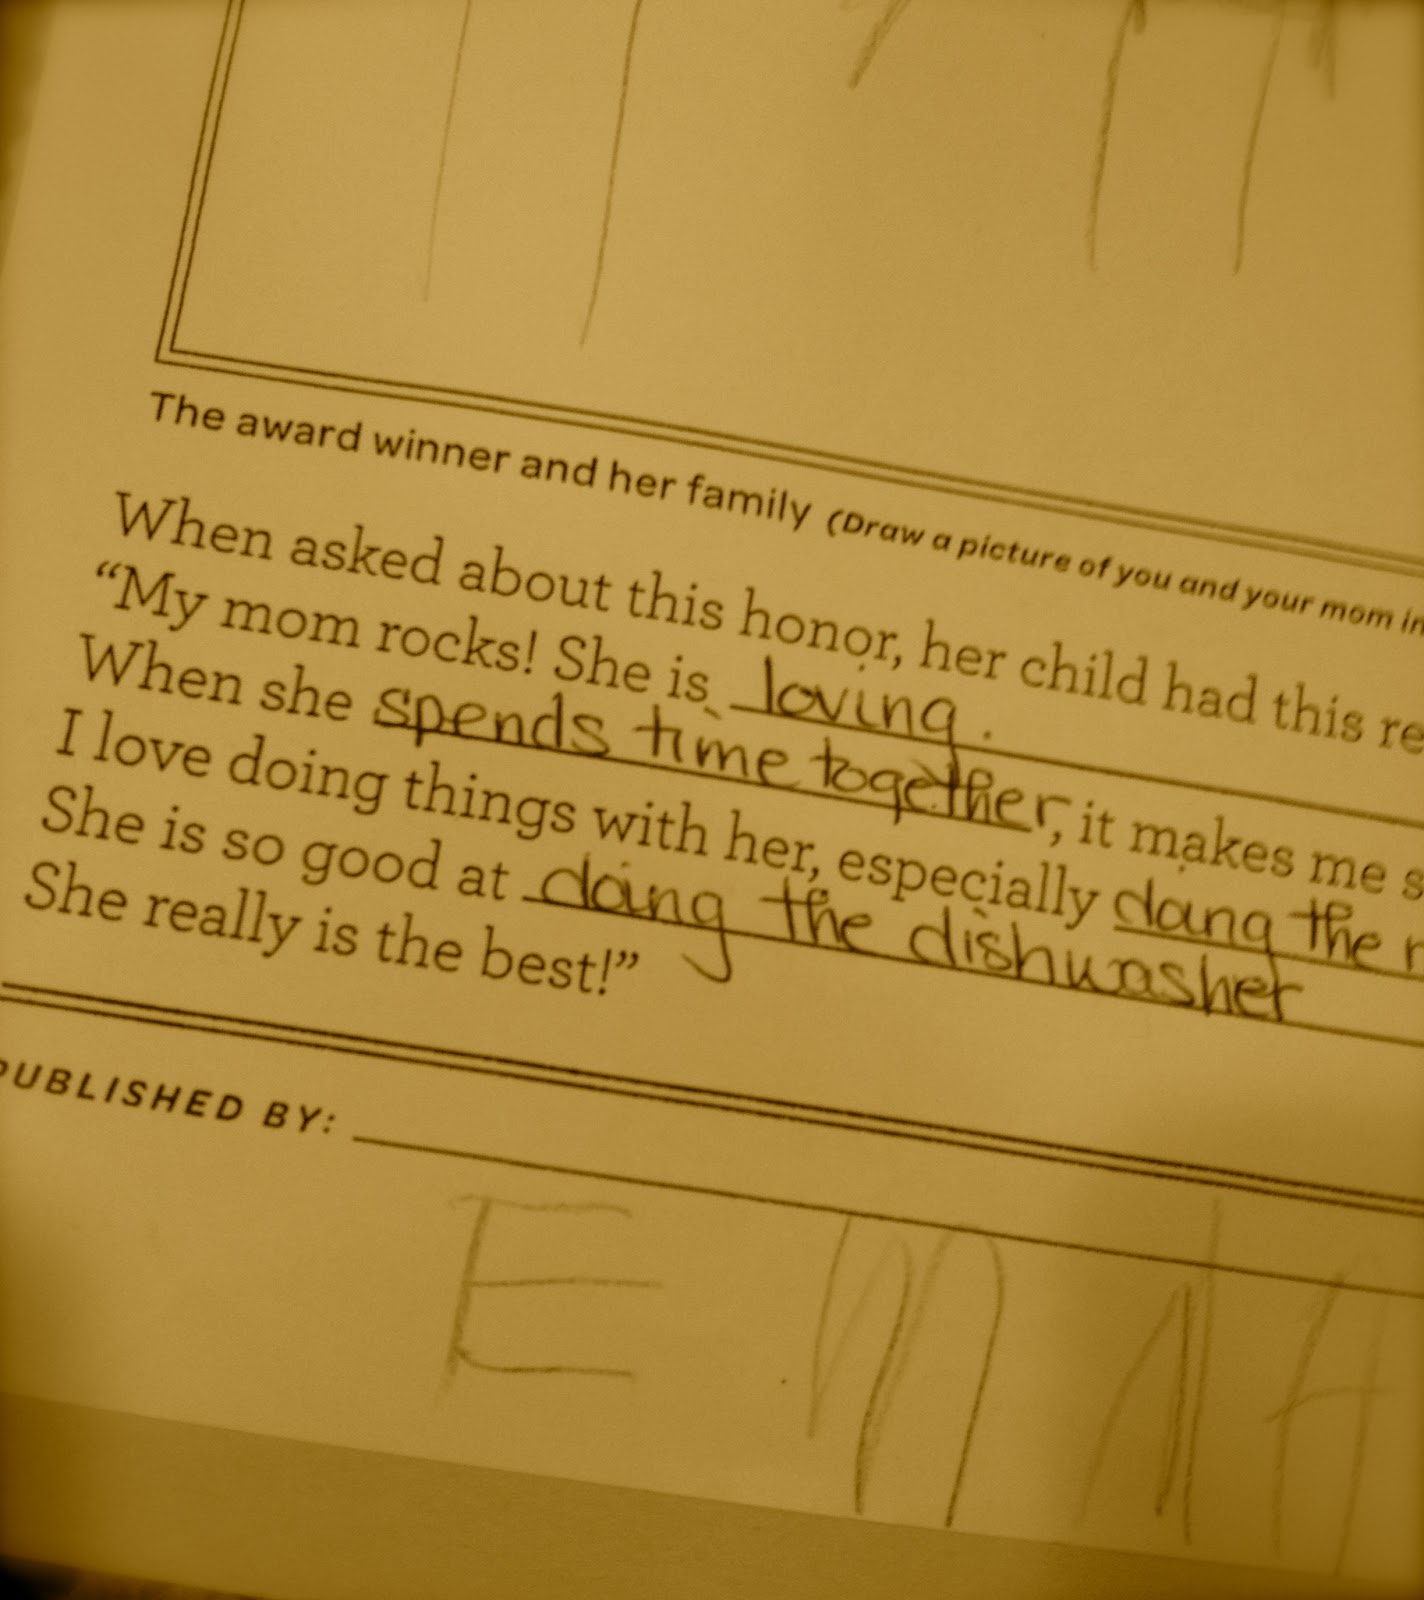 The award winner and her family (Draw a picture of you and your mom in
When asked about this honor, her child had this re
“My mom rocks! She is loving.
When she spends time together, it makes me s
I love doing things with her, especially doing the
She is so good at doing the dishwasher
She really is the best!”
PUBLISHED BY: